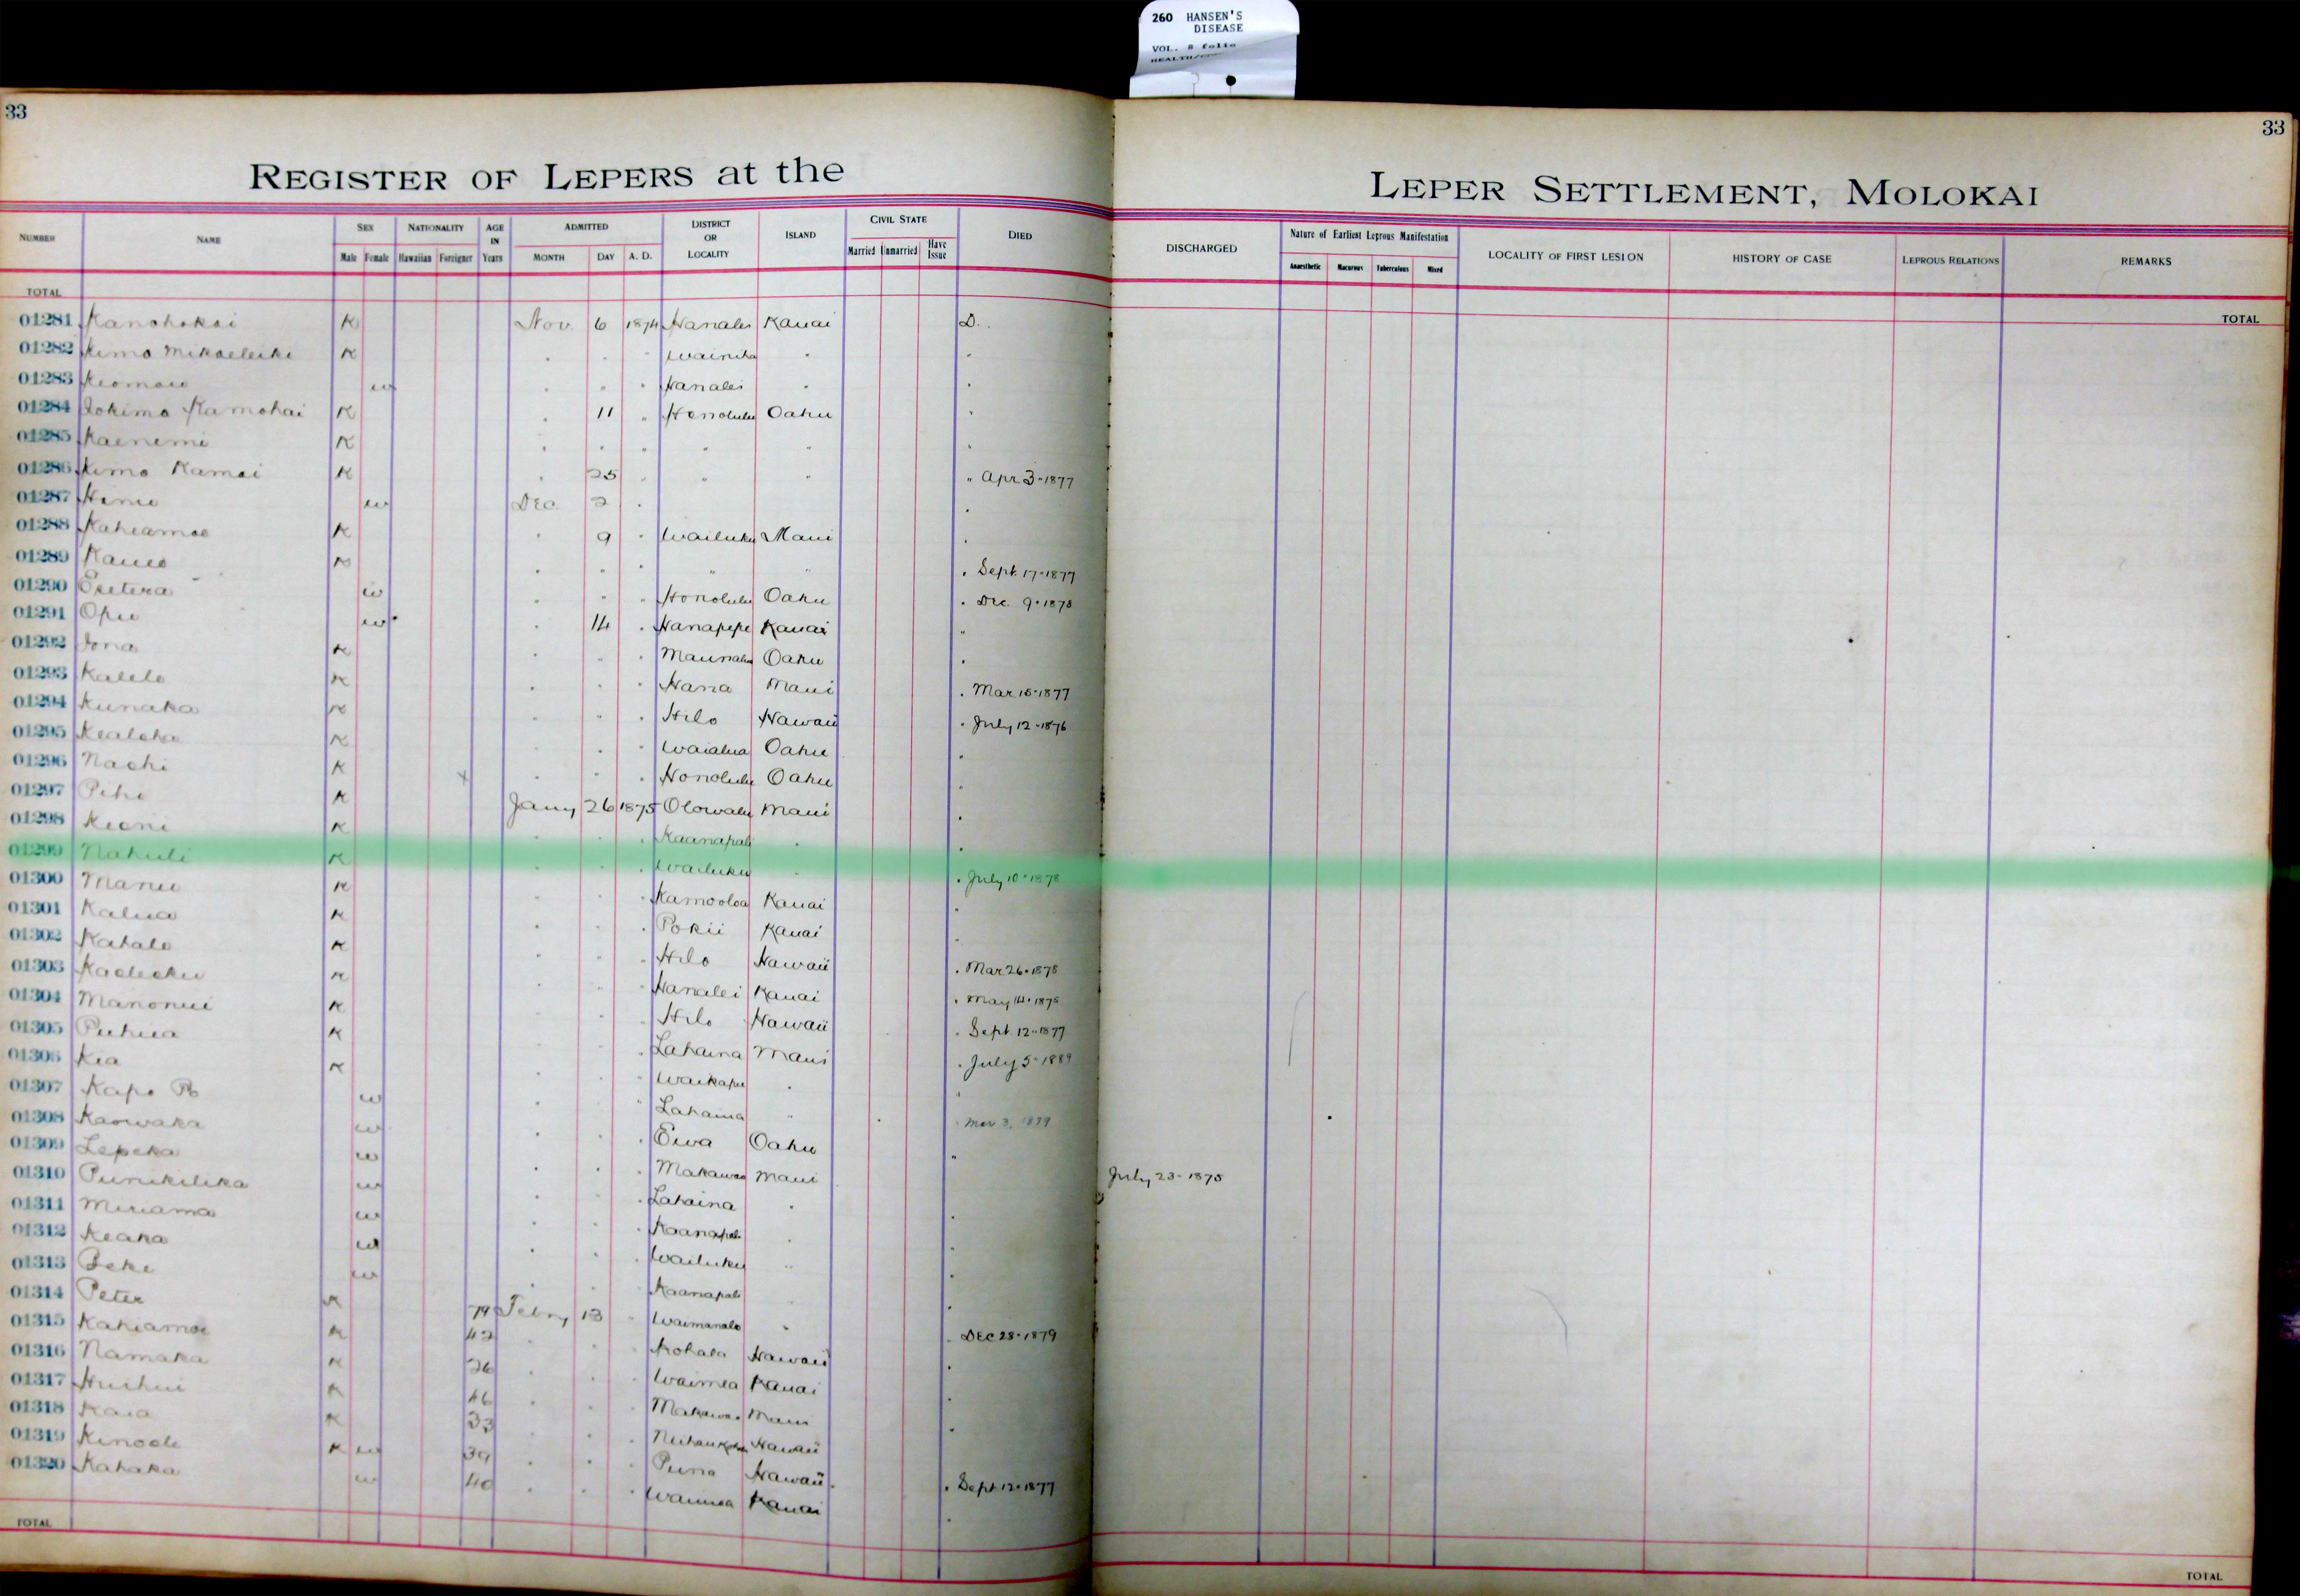 260 HANSEN'S
DISEASE
VOL. 8 folio
33
33
REGISTER OF LEPERS at the LEPER SETTLEMENT, MOLOKAI
NUMBER NAME SEX NATIONALITY AGE IN Years ADMITTED DISTRICT OR LOCALITY ISLAND CIVIL STATE DIED DISCHARGED Nature of Earliest Leprous Manifestation LOCALITY OF FIRST LESION HISTORY OF CASE LEPROUS RELATIONS REMARKS
Male Female Hawaiian Foreigner MONTH DAY A. D. Married Unmarried Have Issue Anaesthetic Macurous Tuberculous Mixed
TOTAL TOTAL
01281 Kanohokai K Nov. 6 1874 Hanalei Kauai D.
01282 Kimo Mikaeleike K " " " Wainiha " "
01283 Keomoku w " " " Hanalei " "
01284 Iokimo Kamohai K " 11 " Honolulu Oahu "
01285 Kaenemi K " " " " " "
01286 Kimo Kamai K " 25 " " " " Apr 3-1877
01287 w Dec. 2 " "
01288 Kahiamoe K " 9 " Wailuku Maui "
01289 K " " " " " " Sept. 17-1877
01290 w " " " Honolulu Oahu " Dec. 9-1878
01291 Opu w " 14 " Hanapepe Kauai "
01292 Iona K " " " Oahu "
01293 Kalelo K " " " Hana Maui " Mar 15-1877
01294 Kunaka K " " " Hilo Hawaii " July 12-1876
01295 Kealoha K " " " Waialua Oahu "
01296 Naohi K " " " Honolulu Oahu "
01297 Pihi K Jany 26 1875 Olowalu Maui "
01298 Keoni K " " " Kaanapali " "
01299 Nahuli K " " " Wailuku " " July 10-1878
01300 Manu K " " " Kamooloa Kauai "
01301 Kalua K " " " Pokii Kauai "
01302 Kahalo K " " " Hilo Hawaii " Mar 26-1878
01303 K " " " Hanalei Kauai " May 14-1875
01304 Manonui K " " " Hilo Hawaii " Sept 12-1877
01305 Puhua K " " " Lahaina Maui " July 5-1889
01306 Kia K " " " Waikapu " "
01307 Kapo w " " " Lahaina " " Mar 3, 1879
01308 Kaowaka w " " " Ewa Oahu "
01309 Lepeka w " " " Makawao Maui July 23-1875
01310 Punikilika w " " " Lahaina " "
01311 Miriama w " " " Kaanapali " "
01312 Keaka w " " " Wailuku " "
01313 Beke w " " " Kaanapali " "
01314 Peter K 79 Febry 13 " Waimanalo " " Dec 28-1879
01315 Kahiamoe K 42 " " " Kohala Hawaii "
01316 Namaka K 26 " " " Waimea Kauai "
01317 Huihui K 46 " " " Makawao Maui "
01318 Kaia K 33 " " " Hawaii
01319 Kinoole K w 39 " " " Puna Hawaii " Sept 12-1877
01320 Kahaka w 40 " " " Waimea Kauai "
TOTAL TOTAL